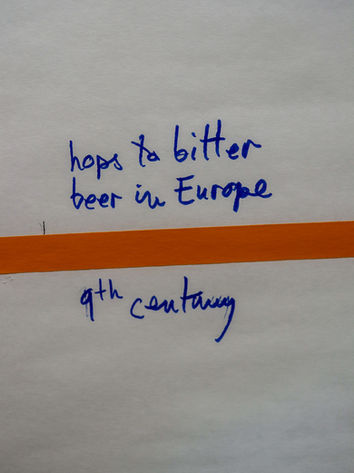 hops to bitter
beer in Europe
9th century